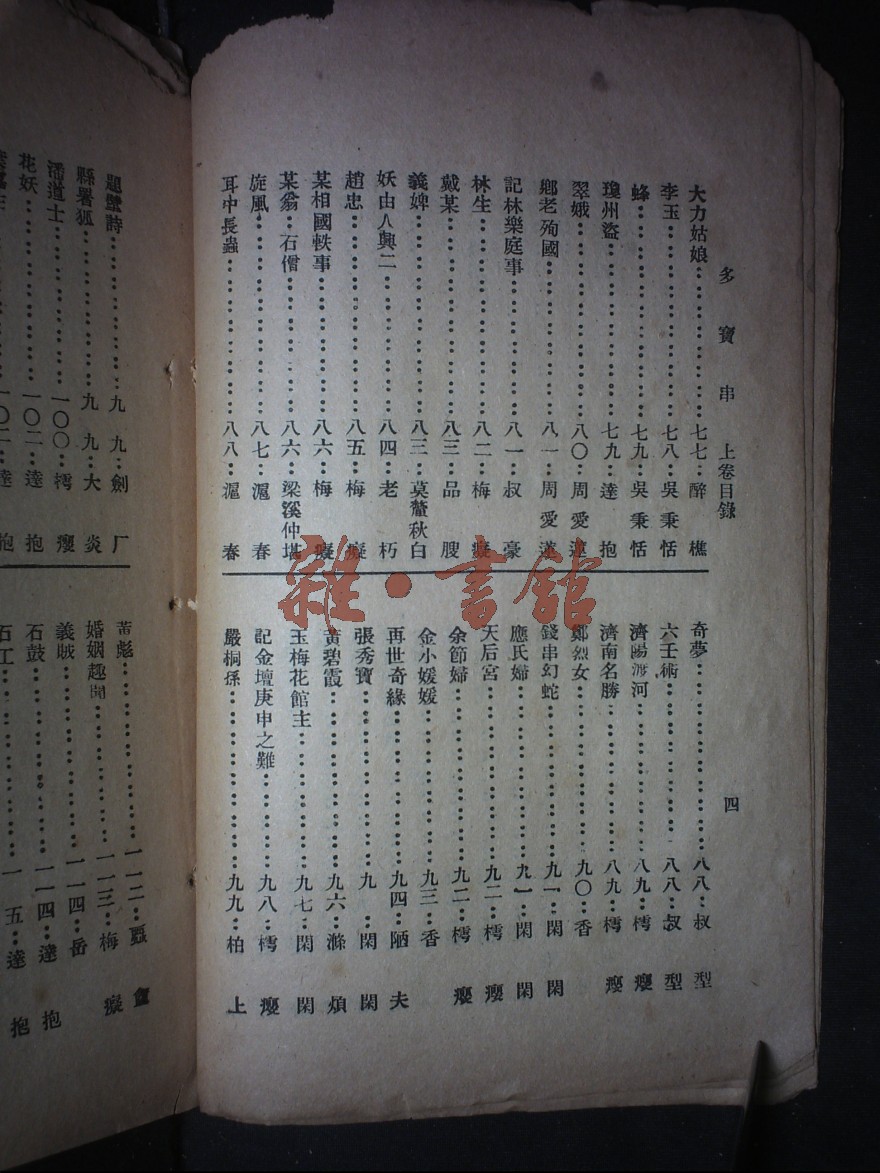 多寶串 上卷目錄 四
大力姑娘……七七…醉樵
李玉……七八…吳秉恬
蜂……七九…吳秉恬
瓊州盜……七九…達抱
翠娥……八〇…周愛蓮
鄉老殉國……八一…周愛蓮
記林樂庭事……八一…叔豪
林生……八二…梅癡
戴某……八三…品膄
義婢……八三…莫釐秋白
妖由人興二……八四…老朽
趙忠……八五…梅癡
某相國軼事……八六…梅癡
某翁…石僧……八六…梁溪仲堪
旋風……八七…滬春
耳中長蟲……八八…滬春
奇夢……八八…叔型
六壬術……八八…叔型
濟陽渡河……八九…樗癭
濟南名勝……八九…樗癭
鄭烈女……九〇…香
錢串幻蛇……九一…閑閑
應氏婦……九一…閑閑
天后宮……九二…樗癭
余節婦……九二…樗癭
金小媛媛……九三…香
再世奇緣……九四…陋夫
張秀寶……九…閑閑
黃碧霞……九六…滌煩
玉梅花館主……九七…閑閑
記金壇庚申之難……九八…樗癭
嚴桐孫……九九…柏上
題壁詩……九九…劍厂
縣署狐……九九…大炎
潘道士……一〇〇…樗癭
花妖……一〇二…達抱
一〇二…達抱
黃彪……一一二
婚姻趣聞……一一三…梅癡
義賊……一一四…岳
石鼓……一一四…達抱
石工……一一五…達抱
雜·書館